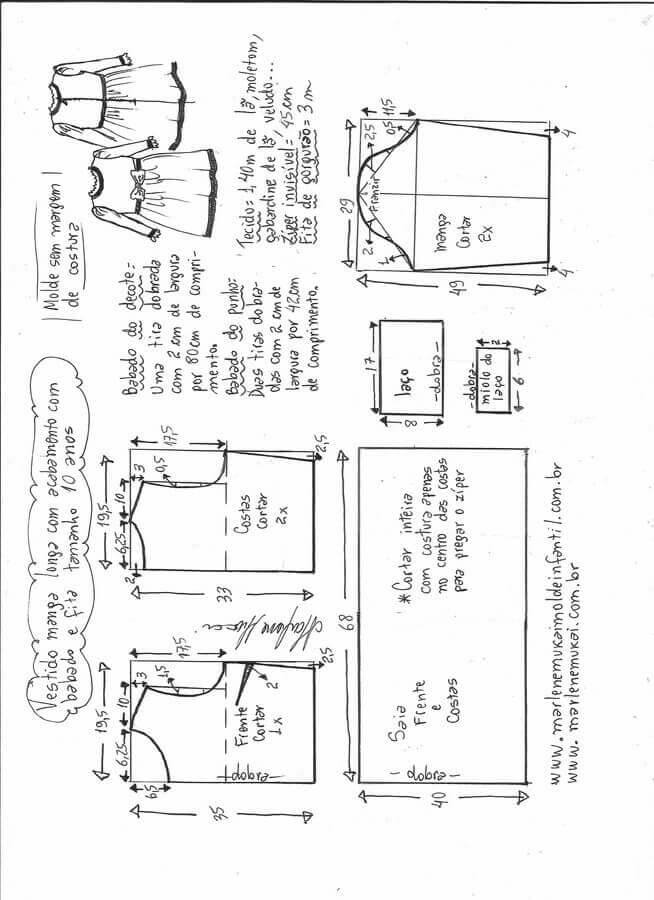 Vestido manga longa com acabamento com
babado e fita tamanho 10 anos
Molde sem margem
de costura
Babado do decote=
Uma tira dobrada
com 2 cm de largura
por 80cm de compri-
mento.
Babado do punho:
Duas tiras dobra-
das com 2 cm de
largura por 42cm
de comprimento.
Tecido= 1,40m de lã, moletom,
gabardine de lã, veludo...
Ziper invisível= 45cm
Fita de gorgurão = 3m
19,5
6,25
10
3
1,5
17,5
6,5
2
2,5
35
Frente
Cortar
1x
dobra
19,5
6,25
10
3
0,5
17,5
2
2,5
33
Costas
Cortar
2x
29
11,5
2,5
0,5
Franzir
2
1
49
4
4
manga
Cortar
2x
17
8
laço
-dobra-
-dobra-
miolo do
laço
2
6
68
40
Saia
Frente
e
Costas
-dobra-
*Cortar inteira
com costura apenas
no centro das costas
para pregar o zíper
www.marlenemukaimoldeinfantil.com.br
www.marlenemukai.com.br